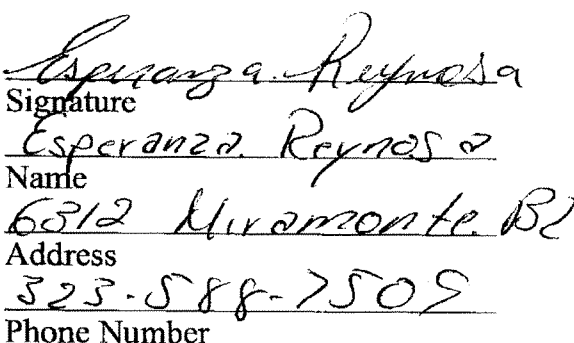 Esperanza Reynosa
Signature
Esperanza. Reynosa
Name
6312 Miramonte. Bl
Address
323-588-7509
Phone Number